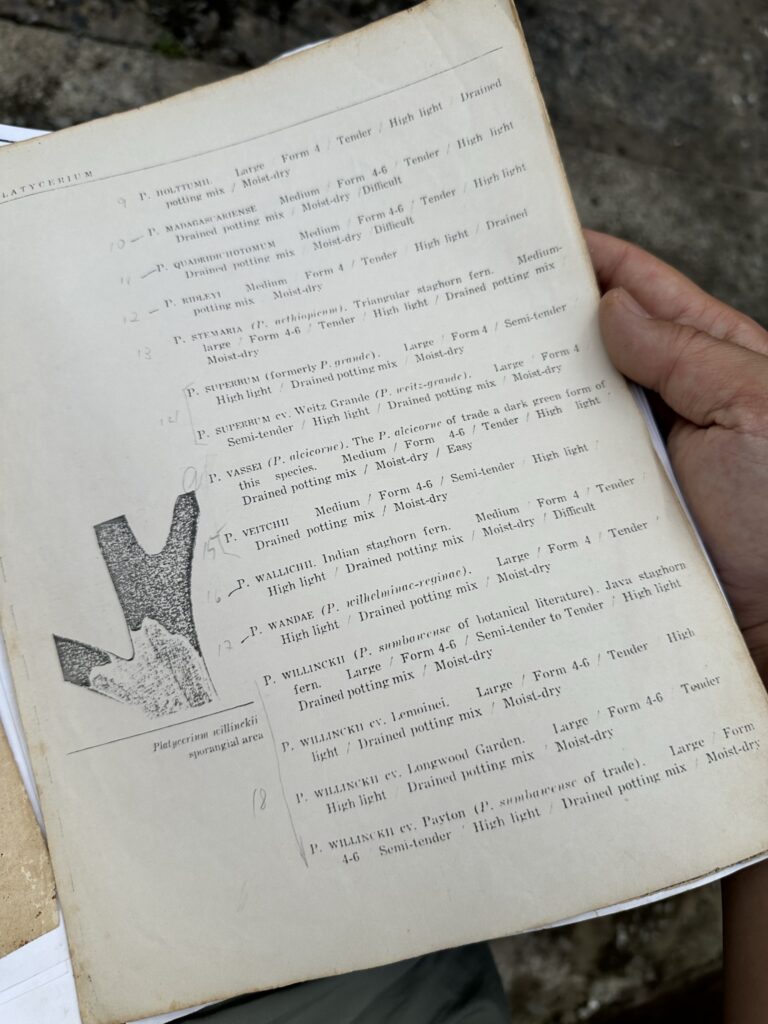 LATYCERIUM
9 P. HOLTTUMII. Large / Form 4 / Tender / High light / Drained
potting mix / Moist-dry
10 – P. MADAGASCARIENSE Medium / Form 4-6 / Tender / High light
Drained potting mix / Moist-dry / Difficult
11 – P. QUADRIDICHOTOMUM Medium / Form 4-6 / Tender / High light
Drained potting mix / Moist-dry Difficult
12 – P. RIDLEYI Medium / Form 4 / Tender / High light / Drained
potting mix Moist-dry
13 P. STEMARIA (P. aethiopicum). Triangular staghorn fern. Medium-
large / Form 4-6 / Tender / High light / Drained potting mix
Moist-dry
14 P. SUPERBUM (formerly P. grande). Large / Form 4 / Semi-tender
High light / Drained potting mix / Moist-dry
P. SUPERBUM cv. Weitz Grande (P. weitz-grande). Large / Form 4
Semi-tender / High light / Drained potting mix / Moist-dry
P. VASSEI (P. alcicorne). The P. alcicorne of trade a dark green form of
this species. Medium / Form 4-6 / Tender / High light
Drained potting mix / Moist-dry / Easy
15 P. VEITCHII Medium / Form 4-6 / Semi-tender / High light
Drained potting mix / Moist-dry
16 P. WALLICHII. Indian staghorn fern. Medium / Form 4 / Tender
High light / Drained potting mix / Moist-dry / Difficult
17 – P. WANDAE (P. wilhelminae-reginae). Large / Form 4 / Tender
High light / Drained potting mix / Moist-dry
P. WILLINCKII (P. sumbawense of botanical literature). Java staghorn
fern. Large / Form 4-6 / Semi-tender to Tender / High light
Drained potting mix / Moist-dry
P. WILLINCKII cv. Lemoinei. Large / Form 4-6 / Tender / High
light / Drained potting mix / Moist-dry
18 P. WILLINCKII cv. Longwood Garden. Large / Form 4-6 / Tender
High light / Drained potting mix / Moist-dry
P. WILLINCKII cv. Payton (P. sumbawense of trade). Large / Form
4-6 Semi-tender / High light / Drained potting mix / Moist-dry
Platycerium willinckii
sporangial area